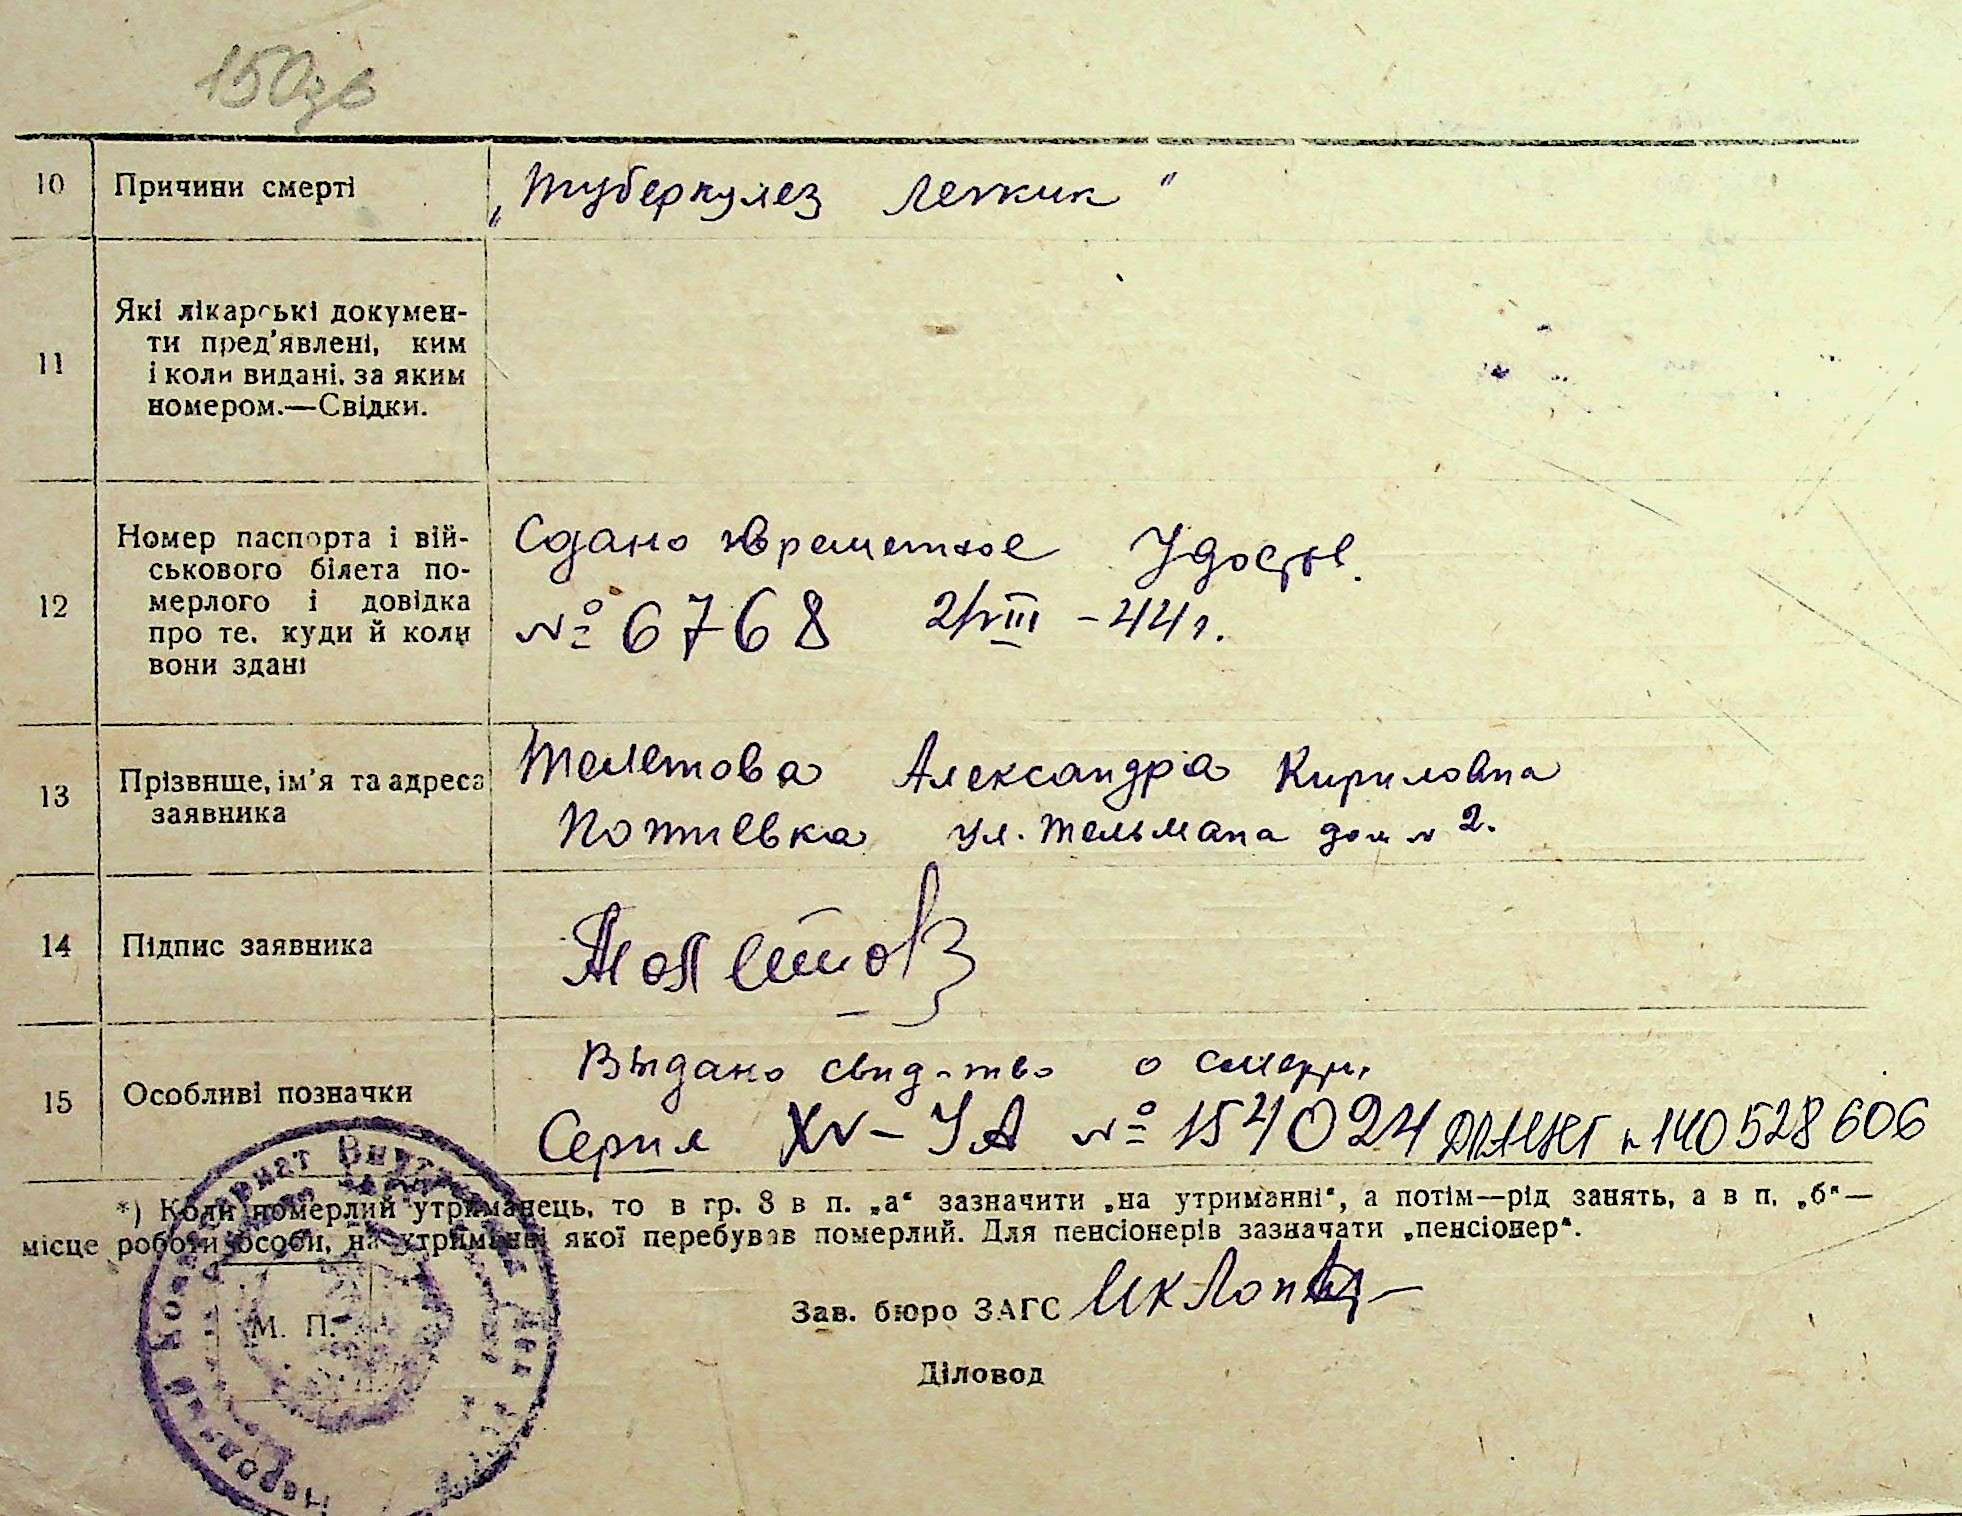 150зв
10 Причини смерті „Туберкулез легких"
11 Які лікарські докумен-
ти пред'явлені, ким
і коли видані, за яким
номером.—Свідки.
12 Номер паспорта і вій-
ськового білета по-
мерлого і довідка
про те, куди й коли
вони здані
Сдано временное Удост.
№ 6768 2/VIII -44г.
13 Прізвище, ім'я та адреса
заявника
Телетова Александра Кириловна
Потиевка ул. Тельмана дом № 2.
14 Підпис заявника
15 Особливі позначки Выдано свид-тво о смерти
Серия XV-УА № 154024 № 140528606
*) Коли померлий утриманець, то в гр. 8 в п. „а" зазначити „на утриманні", а потім—рід занять, а в п. „б"—
місце роботи особи, на утриманні якої перебував померлий. Для пенсіонерів зазначати „пенсіонер".
М. П.
Зав. бюро ЗАГС
Діловод
Народний Комісаріат Внутр